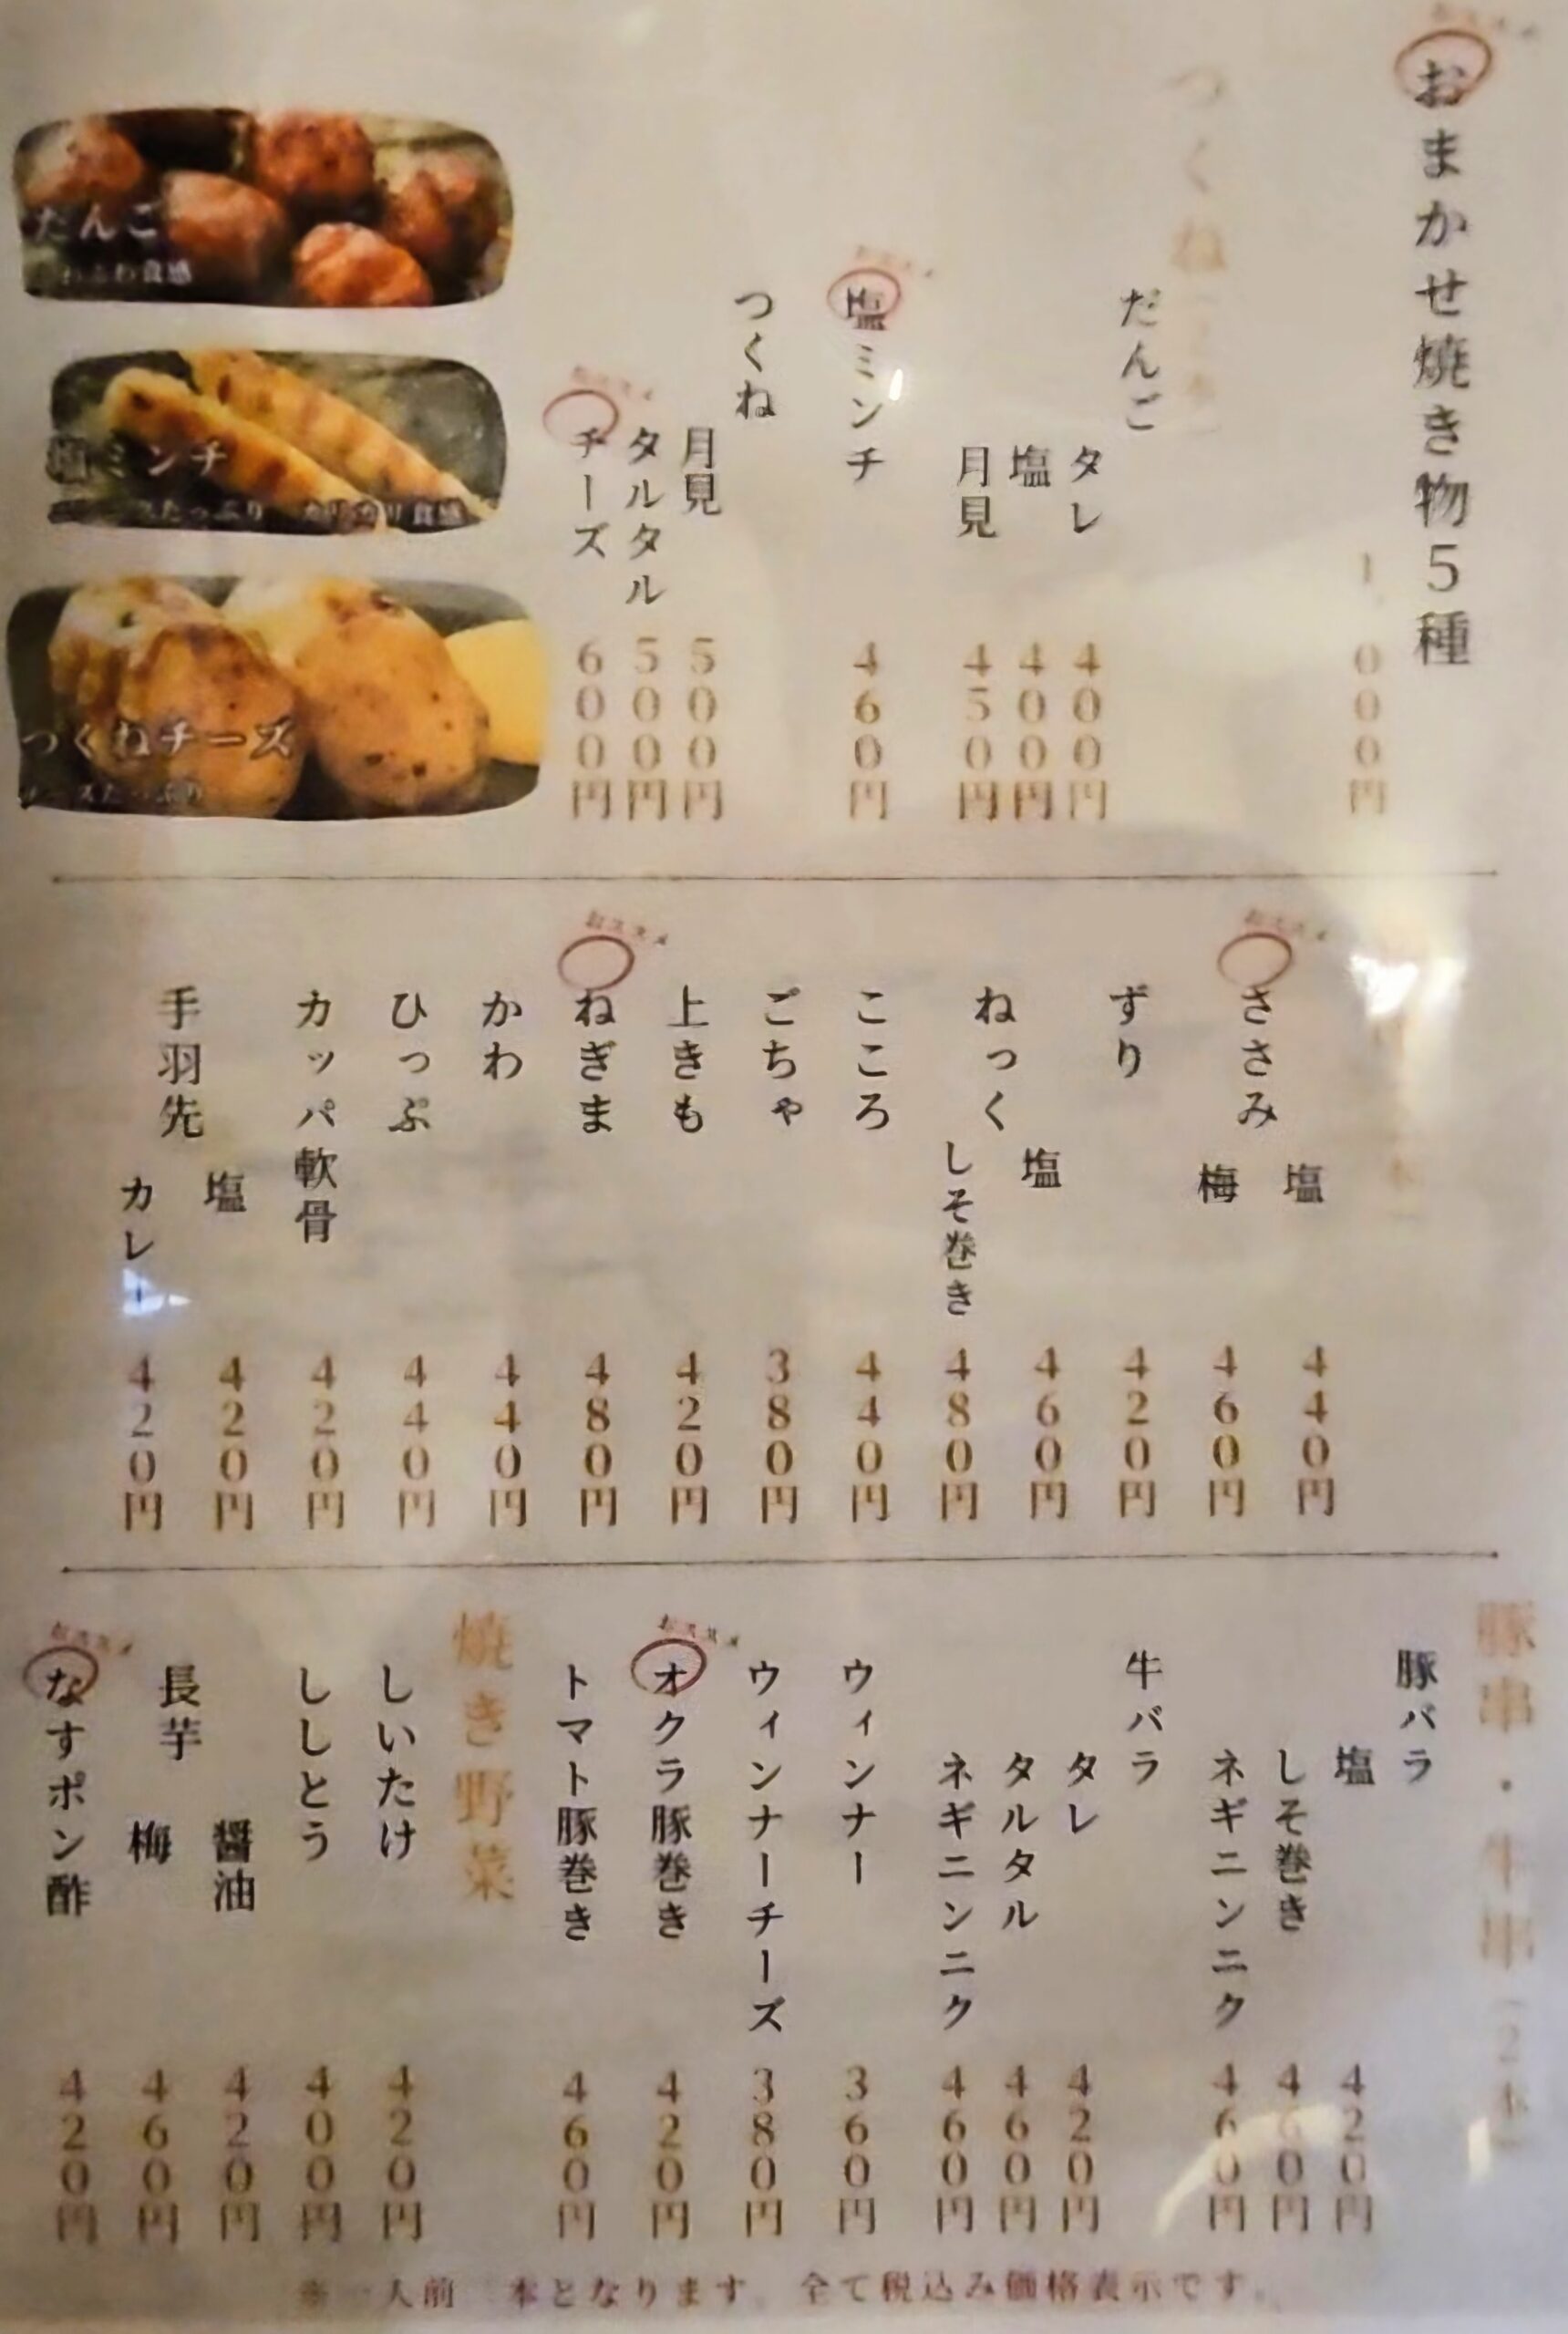 おススメ
おまかせ焼き物5種
1,000円
つくね
だんご
タレ 400円
塩 400円
月見 450円
おススメ
塩ミンチ 460円
つくね
月見 500円
タルタル 500円
おススメ
チーズ 600円
だんご
塩ミンチ
つくねチーズ
おススメ
ささみ
塩 440円
梅 460円
ずり 420円
ねっく
塩 460円
しそ巻き 480円
こころ 440円
ごちゃ 380円
上きも 420円
おススメ
ねぎま 480円
かわ 440円
ひっぷ 440円
カッパ軟骨 420円
手羽先
塩 420円
カレー 420円
豚串・牛串(2本)
豚バラ
塩 420円
しそ巻き 460円
ネギニンニク 460円
牛バラ
タレ 420円
タルタル 460円
ネギニンニク 460円
ウィンナー 360円
ウィンナーチーズ 380円
おススメ
オクラ豚巻き 420円
トマト豚巻き 460円
焼き野菜
しいたけ 420円
ししとう 400円
長芋
醤油 420円
梅 460円
おススメ
なすポン酢 420円
※一人前 本となります。全て税込み価格表示です。